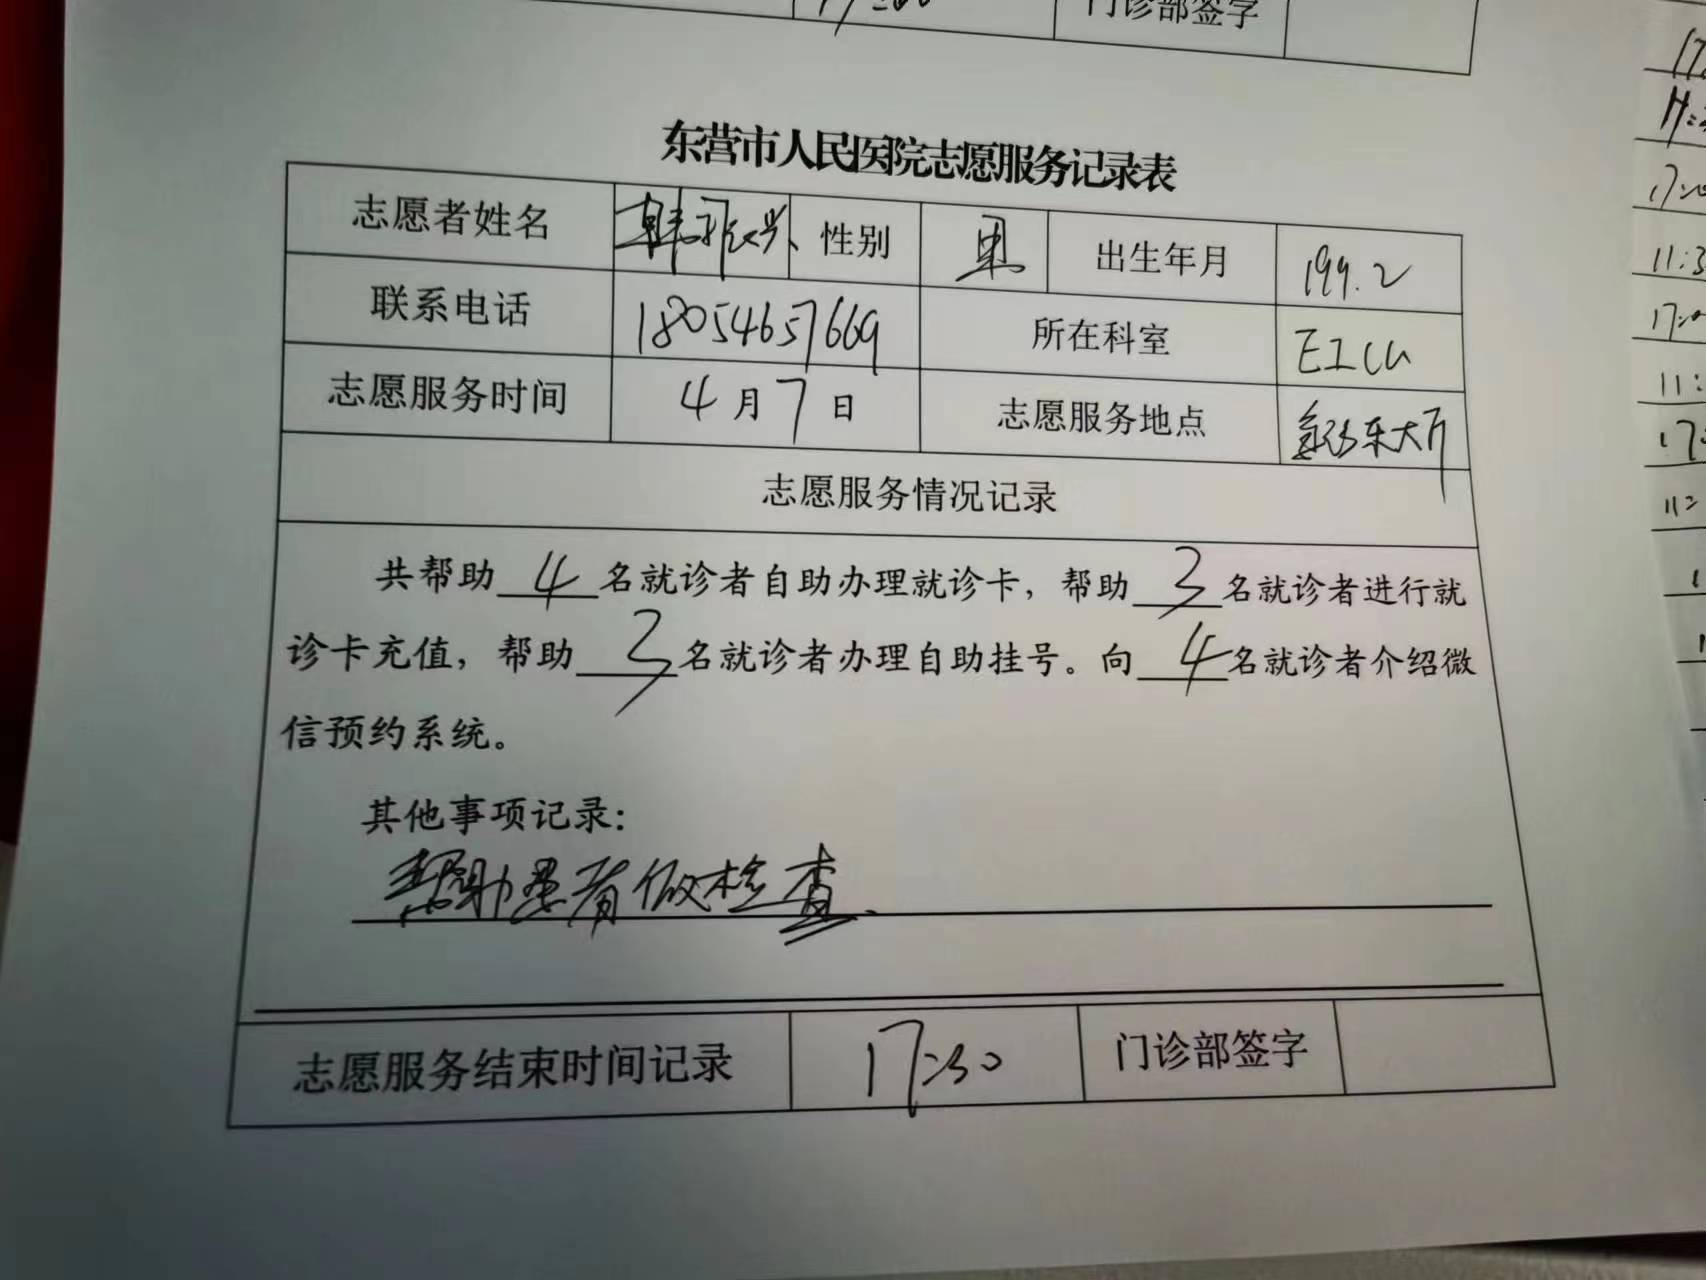 17:00 门诊部签字
东营市人民医院志愿服务记录表
志愿者姓名 韩振兴 性别 男 出生年月 199.2
联系电话 18054657669 所在科室 EICU
志愿服务时间 4月7日 志愿服务地点 东大厅
志愿服务情况记录
共帮助4名就诊者自助办理就诊卡，帮助3名就诊者进行就
诊卡充值，帮助3名就诊者办理自助挂号。向4名就诊者介绍微
信预约系统。
其他事项记录：
帮助患者做检查.
志愿服务结束时间记录 17:30 门诊部签字